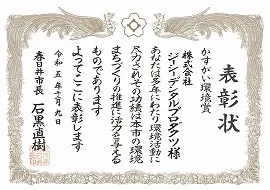 表彰状
かすがい環境賞
株式会社
ジーシーデンタルプロダクツ様
あなたは多年にわたり環境活動に
尽力されその功績は本市の環境
まちづくりの推進に活力を与える
ものであります
よってここに表彰します
令和五年十月九日
春日井市長 石黒直樹